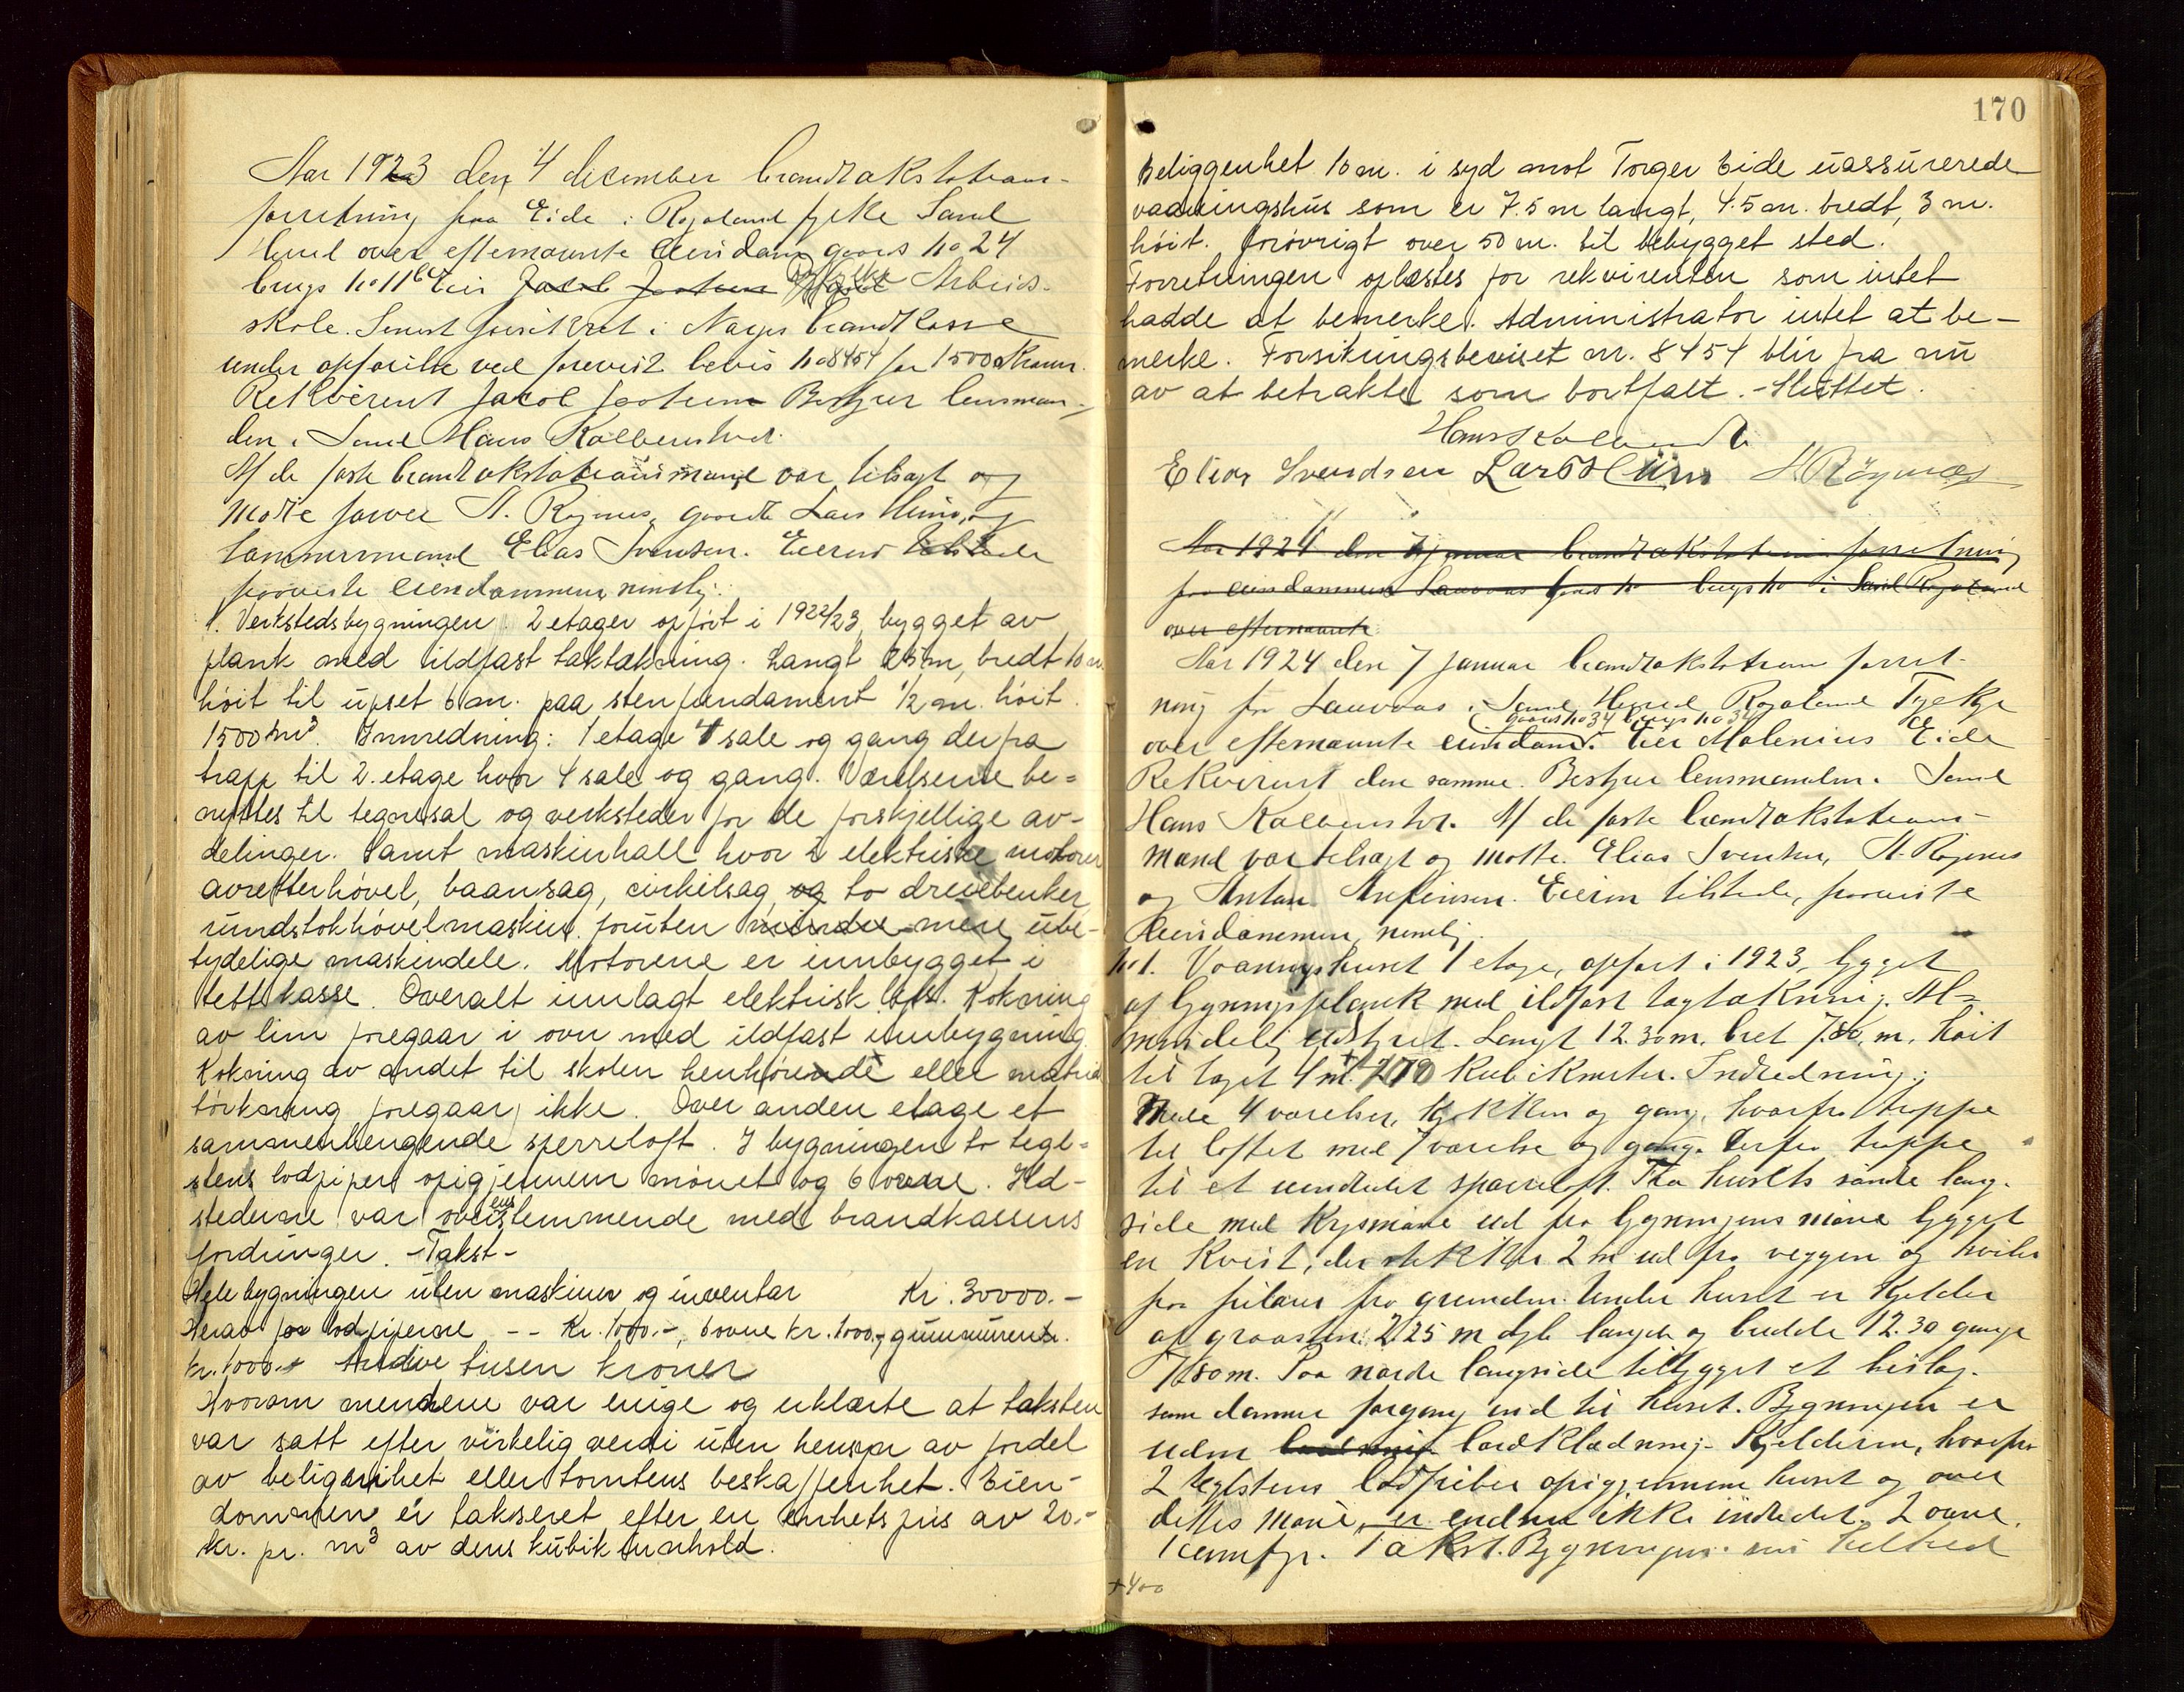 Aar 1923 den 4 december brandtakstotrans-
forretning paa Eide i Rogaland fylke Sand
Herred over efternævnte Eiendam gaards no 24
brugs no 11 b Eier Jacob Jastun Arbeids-
skole. Senest forsikret i Norges brandkasse
under opførilse ved forevist bevis no 8454 for 15000 Kroner.
Rekvirent Jacob Jastun Bestyrer lensman-
den i Sand Hans Kolbenstvedt.
Af de faste brandtakstotransmænd var tilsagt og
møtte farver H. Røgnes, gaardbr Lars Hüns, og
tømmermand Elias Svensen. Eieren tilstede
paaviste eiendommen, nemlig:
1. Verkstedsbygningen. 2 etager opført i 1922/23, bygget av
plank med ildfast taktækning. Langt 25 m, bredt 10 m
høit til upset 6 m. paa stenfundament 1/2 m. høit.
1500 m³. Innredning: 1 etage 4 sale og gang derfra
trapp til 2. etage hvor 4 sale og gang. Værelserne be-
nyttes til tegnesal og verksteder for de forskjellige av-
delinger. Samt maskinhall hvor 2 elektriske motorer
avretterhøvel, baansag, cirkelsag, og to dreiebenker
rundstokhøvelmaskin. foruten mindre mere ube-
tydelige maskindele. Motorene er innbygget i
tett kasse. Overalt innlagt elektrisk lys. Kokning
av lim foregaar i ovn med ildfast innbygning
Kokning av andet til skolen henhørende eller matrial
tørkning foregaar ikke. Over anden etage et
sammenhengende sperreloft. I bygningen to tegl-
stens lodpiper opigjennem mønet og 6 ovne. Ild-
stederne var overensstemmende med brandkassens
fordringer. -Takst-
Hele bygningen uten maskiner og inventar Kr. 30000.-
Herav for lodpiperne -- Kr. 1000.-, 6 ovne kr. 1000,- grunnmuren
kr. 1000.- tredive tusen kroner
Hvorom mendene var enige og erklærte at taksten
var satt efter virkelig verdi uten hensyn av fordel
av beliggenhet eller tomtens beskaffenhet. Eien-
dommen er takseret efter en enhetspris av 20.-
kr. pr. m³ av dens kubikinnhold.
170
Beliggenhet 10 m. i syd mot Torger Eide uassurerede
vaaningshus som er 7.5 m langt, 4.5 m. bredt, 3 m.
høit. forøvrigt over 50 m. til bebygget sted.
Forretningen oplæstes for rekvirenten som intet
hadde at bemerke. Administrator intet at be-
merke. Forsikringsbeviset nr. 8454 blir fra nu
av at betrakte som bortfalt. - Sluttet.
Hans Kolbenstvedt
Elias Svendsen Lars Hüns H. Røgnes
Aar 1924 den 7 januar brandtakstotrans forretning
paa eiendommen Lauvaas gaards no brugs no i Sand Rogaland
over eftern­ævnte
Aar 1924 den 7 januar brandtakstotrans forret-
ning paa Lauvaas i Sand Herred Rogaland Fylke
gaards no 34 brugs no 34
over eftern­ævnte eiendom. Eier Malenius Eide
Rekvirent den samme. Bestyrer lensmanden i Sand
Hans Kolbenstvedt. Af de faste brandtakstotrans-
mænd var tilsagt og møtte. Elias Svensen, H. Røgnes
og Anton Anfinsen. Eieren tilstede, paaviste
Eiendommen, nemlig:
no 1. Vaaningshuset 1 etage, opført i 1923, bygget
af bygningsplank med ildfast tagtækning. Al-
mindelig udstyret. Langt 12.30 m. bret 7.80 m. høit
til taget 4 m. Kubikmeter. Indredning:
Nede 4 værelser, kjøkken og gang, hvorfra trappe
til loftet med 7 værelse og gang. derfra trappe
til et uindredet sparreloft. Fra husets søndre lang-
side med krysmøne ud fra bygningens møne bygget
en Kvist, der stikker 2 m ud fra veggen og hviler
paa pilarer fra grunden. Under huset er kjelder
af graasten. 2.25 m dyb længde og bredde 12.30 gange
7.80 m. Paa nordre langside tilbygget et bislag.
som danner forgang ind til huset. Bygningen er
uden bordklædning. Kjelderen, hvorfra
2 teglstens lodpiber opigjennem huset og over
dettes møne, er endnu ikke indredet. 2 ovne.
1 komfyr. Takst. Bygningen i sin helhed
+400